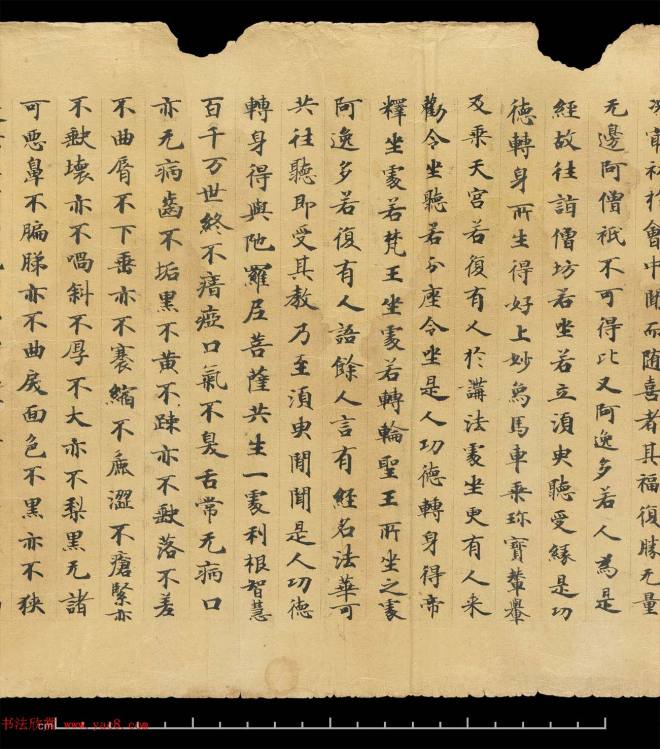 初於會中聞而随喜者其福復勝无量
无邊阿僧祇不可得比又阿逸多若人為是
經故往詣僧坊若坐若立湏臾聽受緣是功
德轉身所生得好上妙象馬車乘珎寳輦轝
及乘天宮若復有人於講法處坐更有人来
勸令坐聽若分座令坐是人功德轉身得帝
釋坐處若梵王坐處若轉輪聖王所坐之處
阿逸多若復有人語餘人言有經名法華可
共往聽即受其教乃至湏臾閒聞是人功德
轉身得與陁羅尼菩薩共生一處利根智慧
百千万世終不瘖瘂口氣不臭舌常无病口
亦无病齒不垢黑不黄不踈亦不缺落不差
不曲脣不下垂亦不褰縮不麁澀不瘡緊亦
不缺壞亦不喎斜不厚不大亦不梨黑无諸
可惡鼻不匾䏲亦不曲戾面色不黑亦不狹
书法欣赏 www.yac8.com
cm